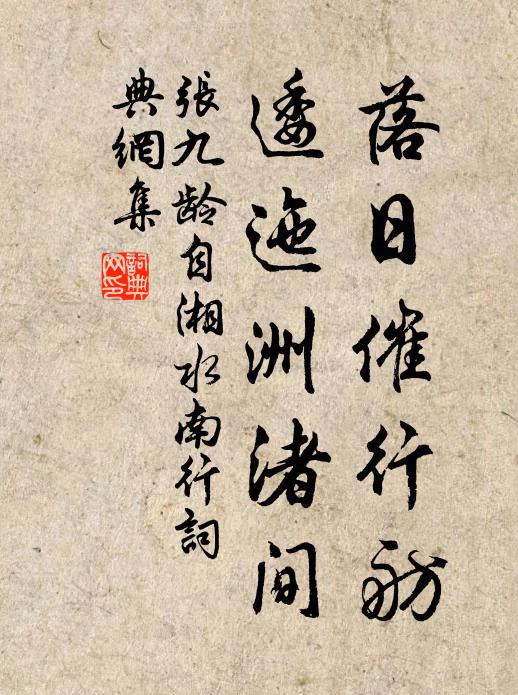 落日催行舫
逶迤洲渚间
張九龄自湘水南行詞
典網集
詞典
网印